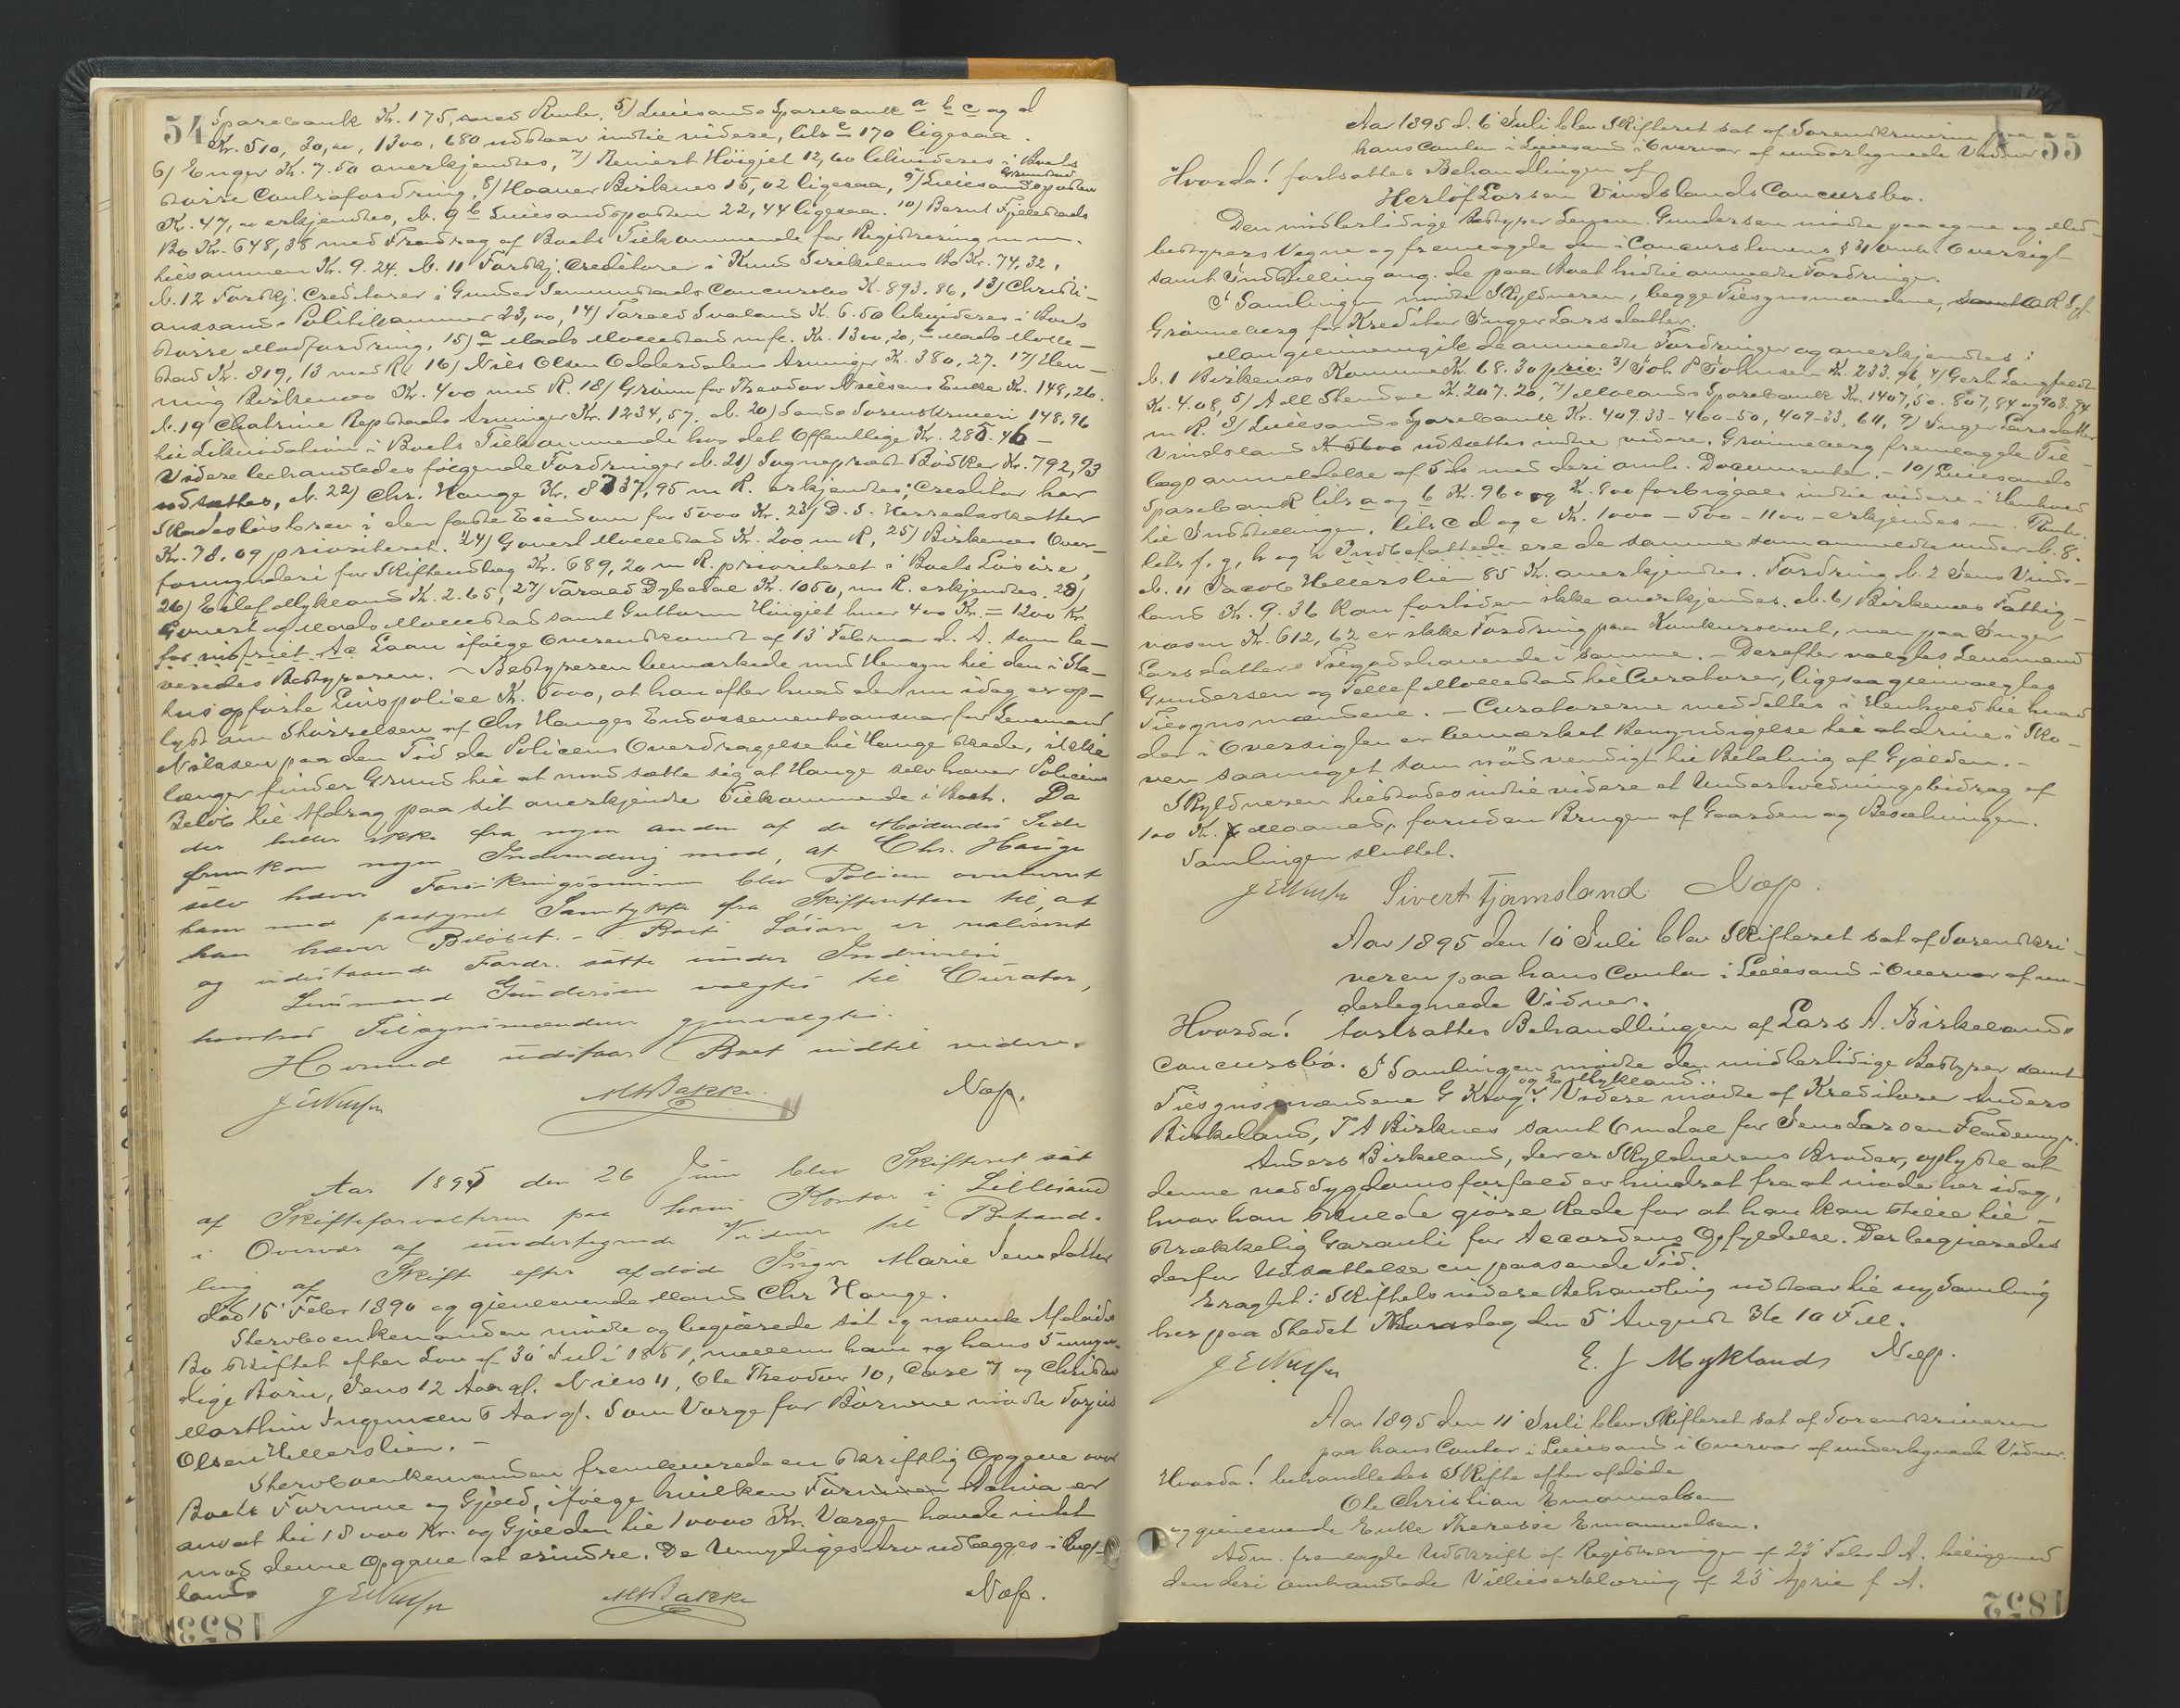 54 Sparebank Kr. 175, med Rente. 5) Lillesands Sparebank a b c og d
Kr. 510, 20,00, 1300, 680 udstaar indtil videre, litr e 170 ligesaa.
6) Enger Kr. 7.50 anerkjendtes, 7) Reinert Höigjel 12,60 likvideres i Boets
større Contrafordring, 8) Haaver Birknes 15,02 ligesaa, 9) Lillesandsposten
Kr. 47,00 erkjendtes, N. 9 b Lillesandsposten 22,44 ligesaa. 10) Bernt Fjellestads
Bo Kr. 648,38 med Fradrag af Boets Tilkommende for Registrering m.m.
tilsammen Kr. 9.24. N. 11 Forskj. Creditorer i Knud Bo Kr. 74,32,
N. 12 Forskj. Creditorer i Gunder Concursbo K. 893.86, 13) Christi-
anssands Politikammer 23,00, 14) Tarald Svaland K. 6.50 likvideres i Boets
større Modfordring, 15) a Mads Mollestad m fl. Kr. 1300,20, Mads Molle-
stad Kr. 819,13 med R. 16) Niels Olsen Odderdalens Arvinger Kr. 380,27. 17) Hen-
ning Birkenes Kr. 400 med R. 18) Grönn for Theodor Nielsens Enke Kr. 148,26.
N. 19 Chatrine Repstads Arvinger Kr. 1234,57. N. 20) Sands Sorenskriveri 148,96
til Likvidation i Boets Tilkommende hos det Offentlige Kr. 285.46 –
Videre behandledes fölgende Fordringer N. 21) Sogneprest Bödker Kr. 792,93
udsættes, N. 22) Chr. Hauge Kr. 8737,95 m R. erkjendtes; Creditor har
Skadeslösbrev i den faste Eiendom for 5000 Kr. 23) D. S. Herredsskatter
Kr. 78.09 prioriteret. 24) Gouert Mollestad Kr. 200 m R, 25) Birkenes Over-
formynderi for Skiftendlæg Kr. 689,20 m R. prioriteret i Boets Lösöre,
26) Eilef Mykland K. 2.65, 27) Tarald Dybedal Kr. 1050, m R. erkjendtes. 28)
Gouert og Mads Mollestad samt Guttorm Höigjel hver 400 Kr. = 1200 Kr.
for Laan ifölge Overenskomst af 13 Februar d. A. som le-
veredes Bestyreren. – Bestyreren bemærkede med Hensyn til den i Sta-
tus opförte Livspolice Kr. 5000, at han efter hvad der nu idag er op-
lyst om Störrelsen af Chr Hauges Endossementsansvar for Lensmand
Nilssen paa den Tid da Policens Overdragelse til Hauge skede, ikke
længer finder Grund til at modsætte sig at Hauge selv hæver Policens
Belöb til Afdrag paa sit anerkjendte Tilkommende i Boet. Da
der heller ikke fra nogen anden af de Mödendes Side
fremkom nogen Indvending mod, at Chr. Hauge
selv hæver Forsikringssummen blev Policen overleveret
ham med paategnet Samtykke fra Skifteretten til, at
han hæver Belöbet. – Boets Lösöre er realiseret
og udestaaende Fordr. satte under Inddriveri
Lensmand Gundersen valgtes til Curator,
hvorhos Tilsynsmændene gjenvalgtes.
Hermed udstaar Boet indtil videre.
J E Nielsen MH Bakke. Næss.
Aar 1895 den 26 Juni blev Skifteret sat
af Skifteforvalteren paa hans Kontor i Lillesand
i Overvær af undertegnede Vidner til Behand-
ling af Skifte efter afdöde Inger Marie Jensdatter
död 15 Febr 1890 og gjenlevende Mand Chr Hauge.
Stervboenkemanden mödte og begjærede sit og nævnte Afdödes
Bo skiftet efter Lov af 30 Juli 1851, mellem ham og hans 5 umyn-
dige Börn, Jens 12 Aar gl. Niels 11, Ole Theodor 10, Carl 7 og Christian
Marthin Ingemann 5 Aar gl. Som Værge for Börnene mödte Torjus
Olsen Hellerslien. –
Stervboenkemanden fremleverede en skriftlig Opgave over
Boets Formue og Gjæld, ifölge hvilken Activa er
ansat til 18000 Kr. og Gjælden til 10000 Kr. Værgen havde intet
mod denne Opgave at erindre. De Umyndiges Arv udlægges i
lands J E Nielsen MH Bakke Næss.
1853
55
Aar 1895 d. 6 Juli blev Skifteret sat af Sorenskriveren paa
hans Contor i Lillesand i Overvær af undertegnede Vidner
Hvorda! fortsattes Behandlingen af
Herlöf Larsen Vindslands Concursbo.
Den midlertidige Bestyrer Lensm. Gundersen mödte paa egne og Med-
bestyrers Vegne og fremlagde den i Concurslovens § 31 omh. Oversigt
samt Indstilling ang. de paa Boet hidtil anmeldte Fordringer.
I Samlingen mödte Skyldneren, begge Tilsynsmændene, samt O R Sgf.
Grönneberg for Kreditor Inger Larsdatter.
Man gjennemgik de anmeldte Fordringer og anerkjendtes:
N. 1 Birkenes Kommune Kr. 68.30 prio. 3) Joh P Johnsen Kr. 233.96, 4) Gerh Langfeldt
Kr. 4.08, 5) A M Stendal K. 207.20, 7) Molands Sparebank Kr. 1407,50. 807,84 og 908.94
m R. 8) Lillesands Sparebank Kr. 409.33 – 460 – 50, 409 – 33, 611, 9) Inger Larsdatter
Vindsland K 5600 udsættes indtil videre. Grönneberg fremlagde Til-
lægsanmeldelse af 5 ds med deri omh. Documenter. – 10) Lillesands
Sparebank litr a og b Kr. 960 og K. 800 forbigaaes indtil videre i Henhold
til Indstillingen, litr c d og e Kr. 1000 – 500 – 1100 – erkjendes m. Rente.
litr f, g, h og i Indbefattede ere de samme som anmeldte under N. 8.
N. 11 Jacob Hellerslien 85 Kr. anerkjendtes. Fordring N. 2 Jens Vinds-
land K. 9.36 kan fortiden ikke anerkjendes. N. 6) Birkenes Fattig-
væsen Kr. 612,62 er ikke Fordring paa Konkursboet, men paa Inger
Larsdatters Tilgodehavende i samme. – Derefter valgtes Lensmand
Gundersen og Tellef Mollestad til Curatorer, ligesaa gjenvalgtes
Tilsynsmændene. – Curatorerne meddeltes i Henhold til hvad
der i Oversigten er bemærket Bemyndigelse til at drive i Sko-
ven saameget som nödvendigt til Betaling af Gjælden. –
Skyldneren tilstodes indtil videre et Underholdningsbidrag af
100 Kr. pr Maaned, foruden Brugen af Gaarden og Besætningen.
Samlingen sluttet.
J E Nielsen Sivert Tjamsland Næss.
Aar 1895 den 10 Juli blev Skifteret sat af Sorenskri-
veren paa hans Contor i Lillesand i Overvær af un-
dertegnede Vidner.
Hvorda! fortsattes Behandlingen af Lars A. Birkelands
Concursbo. I Samlingen mödte den midlertidige Bestyrer samt
Tilsynsmændene G Krog og E Mykland. Videre mödte af Kreditorer Anders
Birkeland, T A Birknes samt Omdal for Jens Larsen
Anders Birkeland, der er Skyldnerens Broder, oplyste at
denne ved Sygdomsforfald er hindret fra at möde her idag,
hvor han skulde gjöre Rede for at han kan stille til-
strækkelig Garanti for Accordens Opfyldelse. Der begjæredes
derfor Udsættelse en passende Tid.
Eragtet: Skiftets videre Behandling udstaar til ny Samling
her paa Stedet Mandag den 5 August Kl 10 Fm.
J E Nielsen E. J Myklands Næss.
Aar 1895 den 11 Juli blev Skifteret sat af Sorenskriveren
paa hans Contor i Lillesand i Overvær af undertegnede Vidner.
Hvorda! behandledes Skifte efter afdöde
Ole Christian Emanuelsen
og gjenlevende Enke Theresie Emanuelsen.
Adm. fremlagde Udskrift af Registreringen af 23 Febr d A. tilligemed
den deri omhandlede Villieserklæring af 23 April f A.
1852